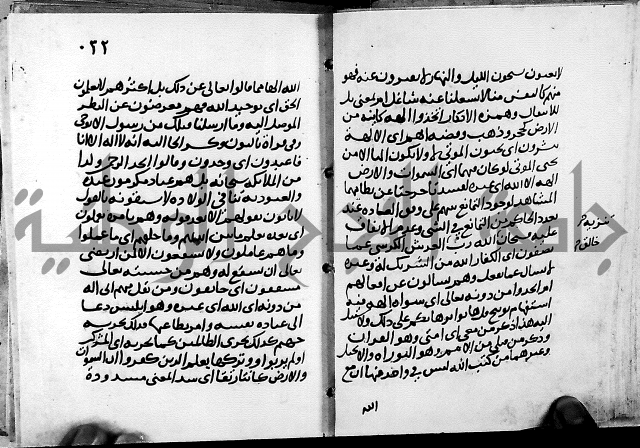 لا يعيون يسبحون الليل والنهار لا يفترون عنه فهو
منهم كالنفس منا لا يشغلنا عنه شاغل ام بمعنى بل
للانتقال وهمزة الانكار اتخذوا الهة كائنة من
الارض كحجر وذهب وفضة هم اى الالهة
ينشرون اى يحيون الموتى لا ولا يكون الها الا من
يحيى الموتى لو كان فيهما اى السموات والارض
الهة الا الله اى غيره لفسدتا خرجتا عن نظامهما
المشاهد لوجود التمانع بينهم على وفق العادة عند
تعدد الحاكم من التمانع فى الشى وعدم الاتفاق
عليه فسبحان الله رب العرش الكرسى عما
يصفون اى الكفار الله من الشريك له وغيره
لا يسال عما يفعل وهم يسالون عن افعالهم
ام اتخذوا من دونه تعالى اى سواه الهة فيه
استفهام توبيخ قل هاتوا برهانكم على ذلك ولا سبيل
اليه هذا ذكر من معى اى امتى وهو القران
وذكر من قبلى من الامم وهو التوراة والانجيل
وغيرهما من كتب الله ليس فى واحد منها ان مع
الله
٠٢٢
الله الها مما قالوا تعالى عن ذلك بل اكثرهم لا يعلمون
الحق اى توحيد الله فهم معرضون عن النظر
الموصل اليه وما ارسلنا قبلك من رسول الا يوحى
وفى قراة بالنون نوحى اليه انه لا اله الا انا
فاعبدون اى وحدون وقالوا اتخذ الرحمن ولدا
من الملائكة سبحانه بل هم عباد مكرمون عنده
والعبودية تنافى الولادة لا يسبقونه بالقول
لا ياتون بقولهم الا بعد قوله وهم بامره يعملون
اى بعده يعلم ما بين ايديهم وما خلفهم اى ما عملوا
وما هم عاملون ولا يشفعون الا لمن ارتضى
تعالى ان يشفع له وهم من خشيته تعالى
مشفقون اى خائفون ومن يقل منهم انى اله
من دونه اى الله اى غيره وهو ابليس دعا
الى عبادة نفسه وامر بطاعتها فذلك نجزيه
جهنم كذلك نجزى الظالمين كما نجزيه اى المشركين
اولم بواو وتركها ير يعلم الذين كفروا ان السموات
والارض كانتا رتقا اى سدا بمعنى مسدودة